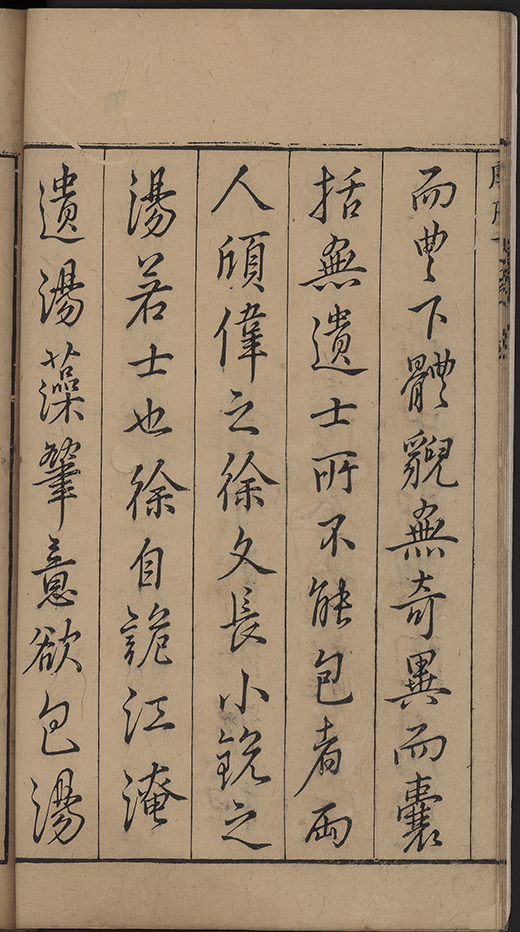 而豊下體貌無奇異而囊
括無遺士所不能包者兩
人頎偉之徐文長小銳之
湯若士也徐自詭江淹
遺湯藻筆意欲包湯